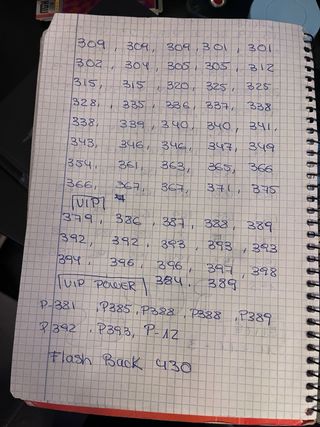 309, 309, 309, 301, 301
302, 304, 305, 305, 312
315, 315, 320, 325, 325
328, 335, 336, 337, 338
338, 339, 340, 340, 341,
343, 346, 346, 347, 349
354, 361, 363, 365, 366
366, 367, 367, 371, 375
VIP
379, 386, 387, 388, 389
392, 392, 393, 393, 393
394, 396, 396, 397, 398
VIP POWER 384, 389
P-381, P385, P388, P388, P389
P392, P393, P-12
Flash Back 430